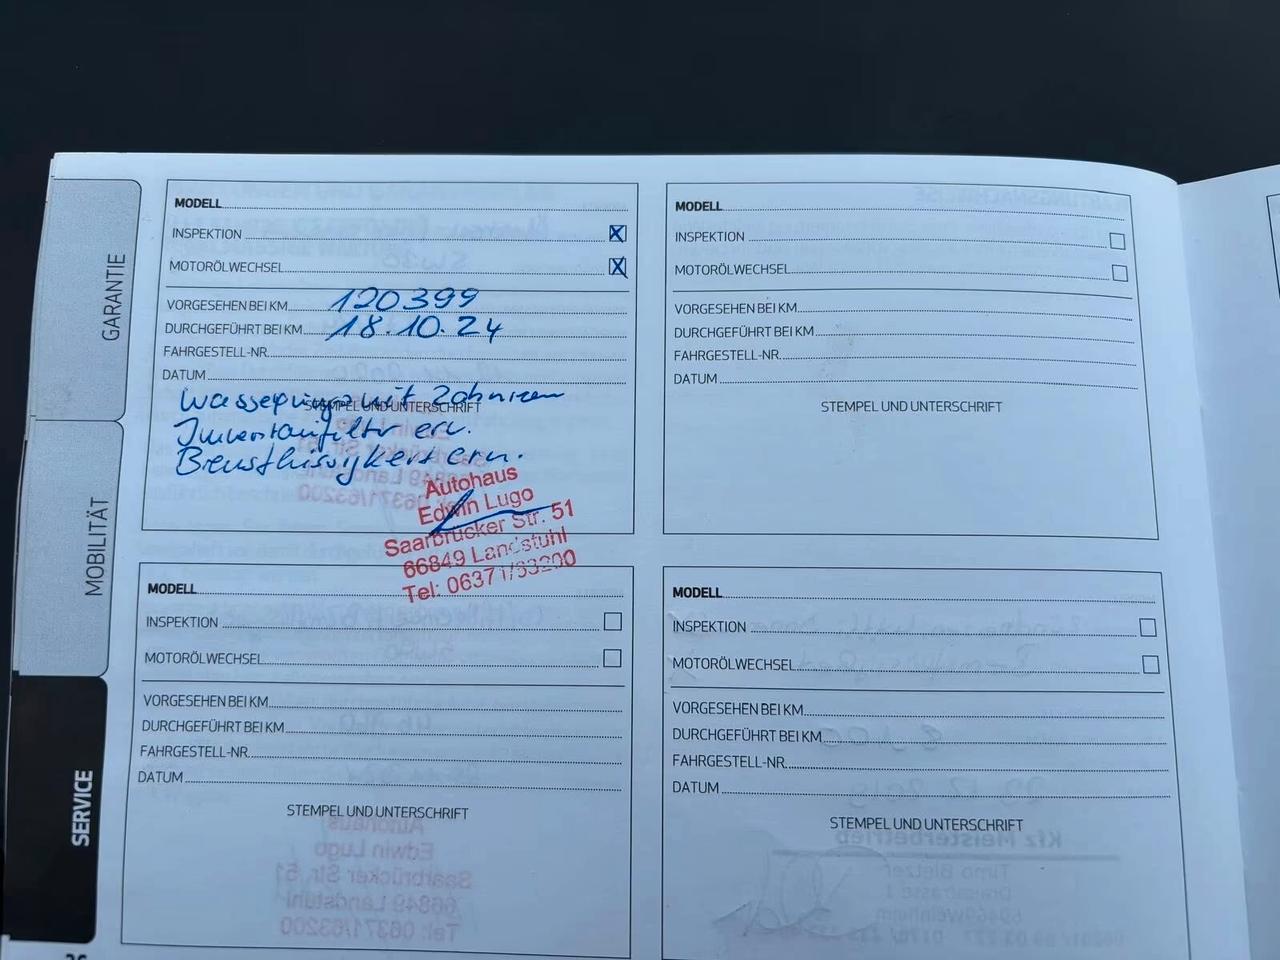 GARANTIE
MOBILITÄT
SERVICE
MODELL
INSPEKTION X
MOTORÖLWECHSEL X
VORGESEHEN BEI KM 120399
DURCHGEFÜHRT BEI KM 18.10.24
FAHRGESTELL-NR.
DATUM
mit Zahnriem
STEMPEL UND UNTERSCHRIFT
ern.
ern.
Autohaus
Edwin Lugo
Saarbrücker Str. 51
66849 Landstuhl
Tel: 06371/63200
MODELL
INSPEKTION
MOTORÖLWECHSEL
VORGESEHEN BEI KM
DURCHGEFÜHRT BEI KM
FAHRGESTELL-NR.
DATUM
STEMPEL UND UNTERSCHRIFT
MODELL
INSPEKTION
MOTORÖLWECHSEL
VORGESEHEN BEI KM
DURCHGEFÜHRT BEI KM
FAHRGESTELL-NR.
DATUM
STEMPEL UND UNTERSCHRIFT
MODELL
INSPEKTION
MOTORÖLWECHSEL
VORGESEHEN BEI KM
DURCHGEFÜHRT BEI KM
FAHRGESTELL-NR.
DATUM
STEMPEL UND UNTERSCHRIFT